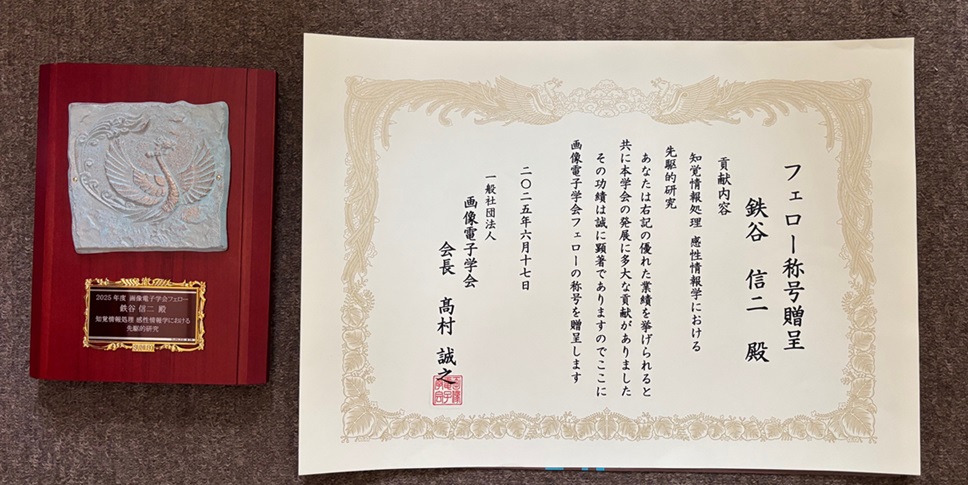 2025年度 画像電子学会フェロー
鉄谷 信二 殿
知覚情報処理 感性情報学における
先駆的研究
フェロー称号贈呈
鉄谷 信二 殿
貢献内容
知覚情報処理 感性情報学における
先駆的研究
あなたは右記の優れた業績を挙げられると
共に本学会の発展に多大な貢献がありました
その功績は誠に顕著でありますのでここに
画像電子学会フェローの称号を贈呈します
二〇二五年六月十七日
一般社団法人
画像電子学会
会長 髙村 誠之